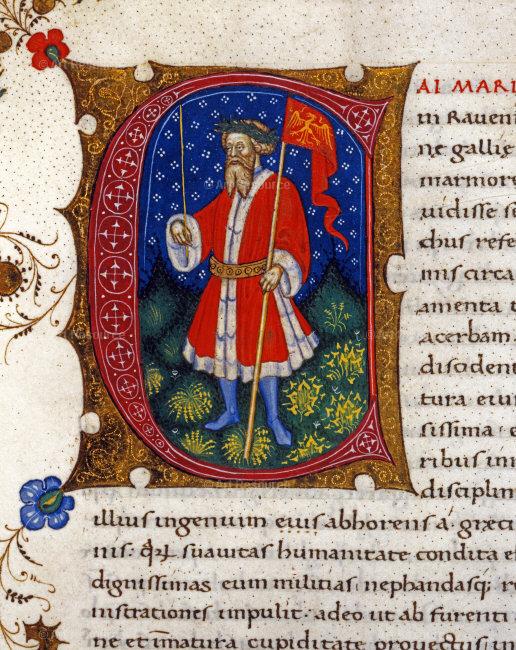 CAI MARI
in Raveni
ne gallię
marmore
uidisse se
chus refe
mis circa
amenta t
acerbam
discident
tura eiu
sissima e
ribus inn
disciplin
illius ingenium eius abhorens a gręci
nis: suauitas humanitate condita e
dignissimas eum militias nephandasq; r
instrationes impulit· adeo ut ab furenti
ne et im̄atura cupiditate prouectus in